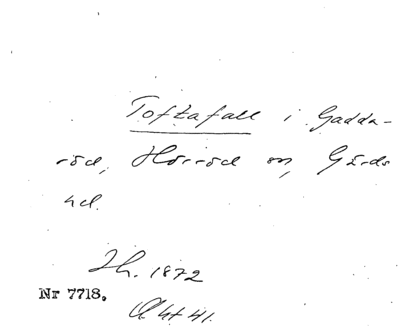 Toftafall i Gadda-
röd, Hörröd sn, Gärds
hd.
Ih. 1872
Nr 7718.
Aht 41.